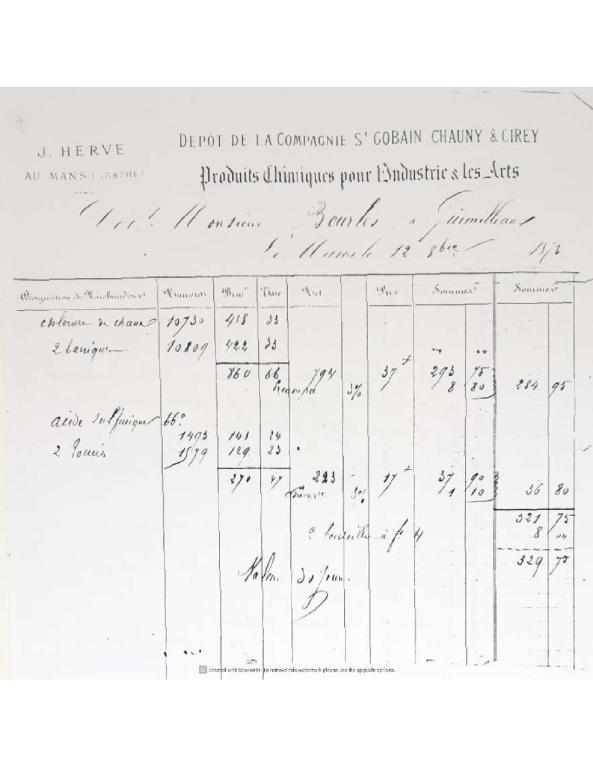 J. HERVE
AU MANS (SARTHE)
DEPÔT DE LA COMPAGNIE St GOBAIN CHAUNY & CIREY
Produits Chimiques pour l'Industrie & les Arts
Doit Monsieur Beurles à
Le 12 8bre 1873
Désignation de Marchandises Numéros Brut Tare Net Prix Sommes Sommes
chlorure de chaux 10730 418 33
2 barriques 10809 422 33
860 66 794 37 293 75
Escompte 3% 8 80 284 95
acide Sulfurique 66°
1493 141 24
2 1579 129 23
270 47 223 17 37 90
3% 1 10 36 80
321 75
2 à fr 4 8 "
329 75
Valeur 30 jours.
Created with Scanner. to remove this watermark please use the upgrade options.